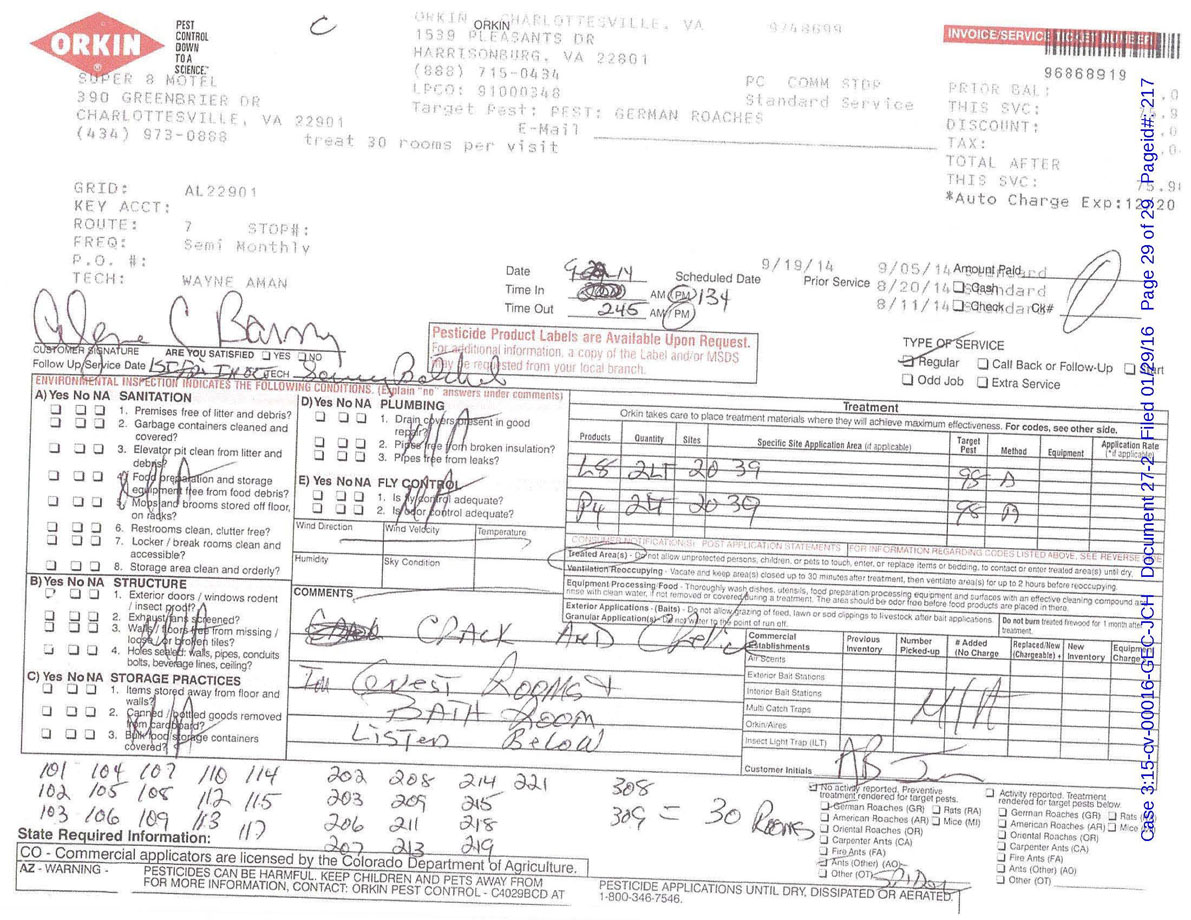 ORKIN
PEST
CONTROL
DOWN
TO A
SCIENCE.
C
ORKIN CHARLOTTESVILLE, VA 9748699
ORKIN
1539 PLEASANTS DR
HARRISONBURG, VA 22801
(888) 715-0434
LPCO: 91000348
Target Pest: PEST: GERMAN ROACHES
E-Mail
PC COMM STOP
Standard Service
INVOICE/SERVICE TICKET NUMBER
96868919
PRIOR BAL:
THIS SVC:
DISCOUNT:
TAX:
TOTAL AFTER
THIS SVC: 75.9
*Auto Charge Exp:
SUPER 8 MOTEL
390 GREENBRIER DR
CHARLOTTESVILLE, VA 22901
(434) 973-0888
treat 30 rooms per visit
GRID: AL22901
KEY ACCT:
ROUTE: 7 STOP#:
FREQ: Semi Monthly
P.O. #:
TECH: WAYNE AMAN
Date
Time In AM PM 134
Time Out 245 AM/PM
Scheduled Date 9/19/14
Prior Service 9/05/14 Standard
8/20/14 Standard
8/11/14 Standard
Amount Paid 0
Cash
Check Ck#
CUSTOMER SIGNATURE ARE YOU SATISFIED YES NO
Follow Up/Service Date TECH
Pesticide Product Labels are Available Upon Request.
For additional information, a copy of the Label and/or MSDS
may be requested from your local branch.
TYPE OF SERVICE
Regular Call Back or Follow-Up
Odd Job Extra Service
ENVIRONMENTAL INSPECTION INDICATES THE FOLLOWING CONDITIONS. (Explain "no" answers under comments)
A) Yes No NA SANITATION
1. Premises free of litter and debris?
2. Garbage containers cleaned and
covered?
3. Elevator pit clean from litter and
debris?
4. Food preparation and storage
equipment free from food debris?
5. Mops and brooms stored off floor,
on racks?
6. Restrooms clean, clutter free?
7. Locker / break rooms clean and
accessible?
8. Storage area clean and orderly?
N/A
B) Yes No NA STRUCTURE
1. Exterior doors / windows rodent
/ insect proof?
2. Exhaust fans screened?
3. Walls / floors free from missing /
loose / or broken tiles?
4. Holes sealed: walls, pipes, conduits
bolts, beverage lines, ceiling?
N/A
C) Yes No NA STORAGE PRACTICES
1. Items stored away from floor and
walls?
2. Canned / bottled goods removed
from cardboard?
3. Bulk food storage containers
covered?
N/A
D) Yes No NA PLUMBING
1. Drain covers present in good
repair?
2. Pipes free from broken insulation?
3. Pipes free from leaks?
N/A
E) Yes No NA FLY CONTROL
1. Is fly control adequate?
2. Is odor control adequate?
N/A
Wind Direction Wind Velocity Temperature
Humidity Sky Condition
Treatment
Orkin takes care to place treatment materials where they will achieve maximum effectiveness. For codes, see other side.
Products Quantity Sites Specific Site Application Area (if applicable) Target Pest Method Equipment Application Rate (*if applicable)
L8 2LT 20 39 98 A
P4 2LT 20 39 98
CONSUMER NOTIFICATION(S): POST APPLICATION STATEMENTS (FOR INFORMATION REGARDING CODES LISTED ABOVE, SEE REVERSE
Treated Area(s) - Do not allow unprotected persons, children, or pets to touch, enter, or replace items or bedding, to contact or enter treated area(s) until dry.
Ventilation Reoccupying - Vacate and keep area(s) closed up to 30 minutes after treatment, then ventilate area(s) for up to 2 hours before reoccupying.
Equipment Processing Food - Thoroughly wash dishes, utensils, food preparation processing equipment and surfaces with an effective cleaning compound and
rinse with clean water, if not removed or covered during a treatment. The area should be odor free before food products are placed in there.
Exterior Applications - (Baits) - Do not allow grazing of feed, lawn or sod clippings to livestock after bait applications.
Granular Application(s) - Do not water to the point of run off.
Do not burn treated firewood for 1 month after
treatment.
COMMENTS
CRACK AND
Guest ROOMS +
BATH ROOM
LISTED Below
Commercial Establishments Previous Inventory Number Picked-up # Added (No Charge Replaced/New (Chargeable) + New Inventory Equipment Charge
Air Scents
Exterior Bait Stations
Interior Bait Stations
Multi Catch Traps
Orkin/Aires
Insect Light Trap (ILT)
N/A
Customer Initials AB
101 104 107 110 114 202 208 214 221 308
102 105 108 112 115 203 209 215 309 = 30 ROOMS
103 106 109 113 117 206 211 218
207 213 219
No activity reported, Preventive
treatment rendered for target pests.
German Roaches (GR) Rats (RA)
American Roaches (AR) Mice (MI)
Oriental Roaches (OR)
Carpenter Ants (CA)
Fire Ants (FA)
Ants (Other) (AO)
Other (OT)
Activity reported, Treatment
rendered for target pests below.
German Roaches (GR) Rats
American Roaches (AR) Mice
Oriental Roaches (OR)
Carpenter Ants (CA)
Fire Ants (FA)
Ants (Other) (AO)
Other (OT)
State Required Information:
CO - Commercial applicators are licensed by the Colorado Department of Agriculture.
AZ - WARNING - PESTICIDES CAN BE HARMFUL. KEEP CHILDREN AND PETS AWAY FROM
FOR MORE INFORMATION, CONTACT: ORKIN PEST CONTROL - C4029BCD AT
PESTICIDE APPLICATIONS UNTIL DRY, DISSIPATED OR AERATED.
1-800-346-7546.
Case 3:15-cv-00016-GEC-JCH Document 27-2 Filed 01/29/16 Page 29 of 29 Pageid#: 217